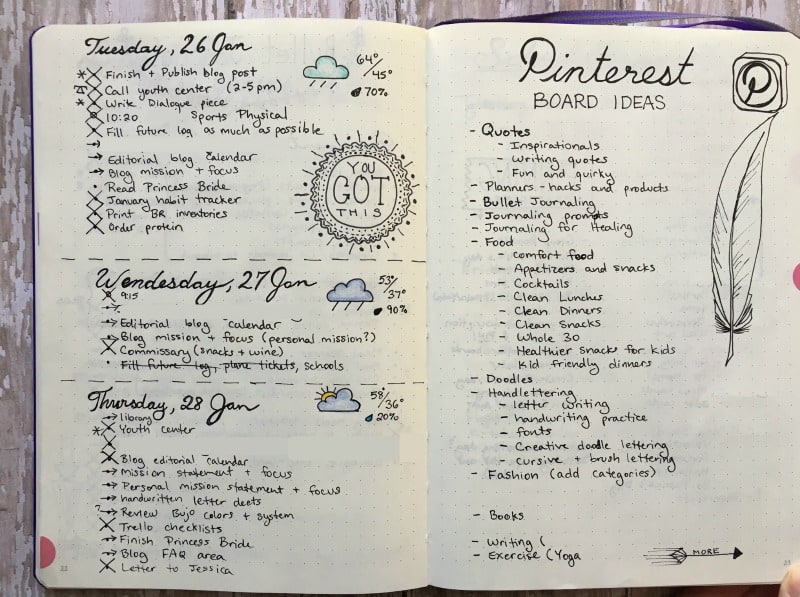 Tuesday, 26 Jan
64°/45°
70%
Finish + Publish blog post
Call youth center (2-5pm)
Write Dialogue piece
10:20 Sports Physical
Fill future log as much as possible
Editorial blog calendar
Blog mission + focus
Read Princess Bride
January habit tracker
Print BR inventories
Order protein
YOU
GOT
THIS
Wendesday, 27 Jan
53°/37°
90%
9:15
Editorial blog calendar
Blog mission + focus (personal mission?)
Commissary (snacks + wine)
Fill future log, plane tickets, schools
Thursday, 28 Jan
58°/36°
20%
library
Youth center
Blog editorial calendar
mission statement + focus
Personal mission statement + focus
handwritten letter deets
? Review Bujo colors + system
Trello checklists
Finish Princess Bride
Blog FAQ area
Letter to Jessica
22
Pinterest
BOARD IDEAS
P
- Quotes
- Inspirationals
- Writing quotes
- Fun and quirky
- Planners - hacks and products
- Bullet Journaling
- Journaling prompts
- Journaling for Healing
- Food
- comfort food
- Appetizers and snacks
- Cocktails
- Clean Lunches
- Clean Dinners
- Clean Snacks
- Whole 30
- Healthier snacks for kids
- Kid friendly dinners
- Doodles
- Handlettering
- letter writing
- handwriting practice
- fonts
- Creative doodle lettering
- cursive + brush lettering
- Fashion (add categories)
- Books
- Writing (
- Exercise (Yoga
MORE